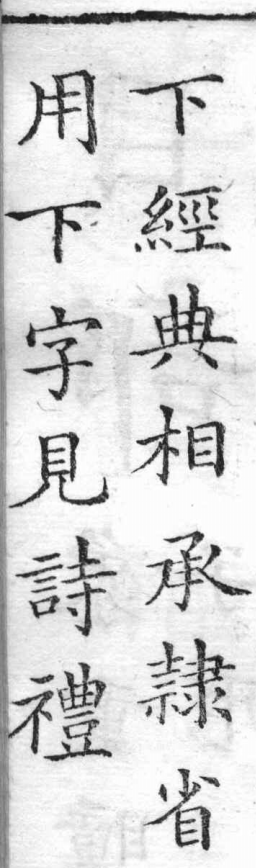 下經典相承隷省
用下字見詩禮